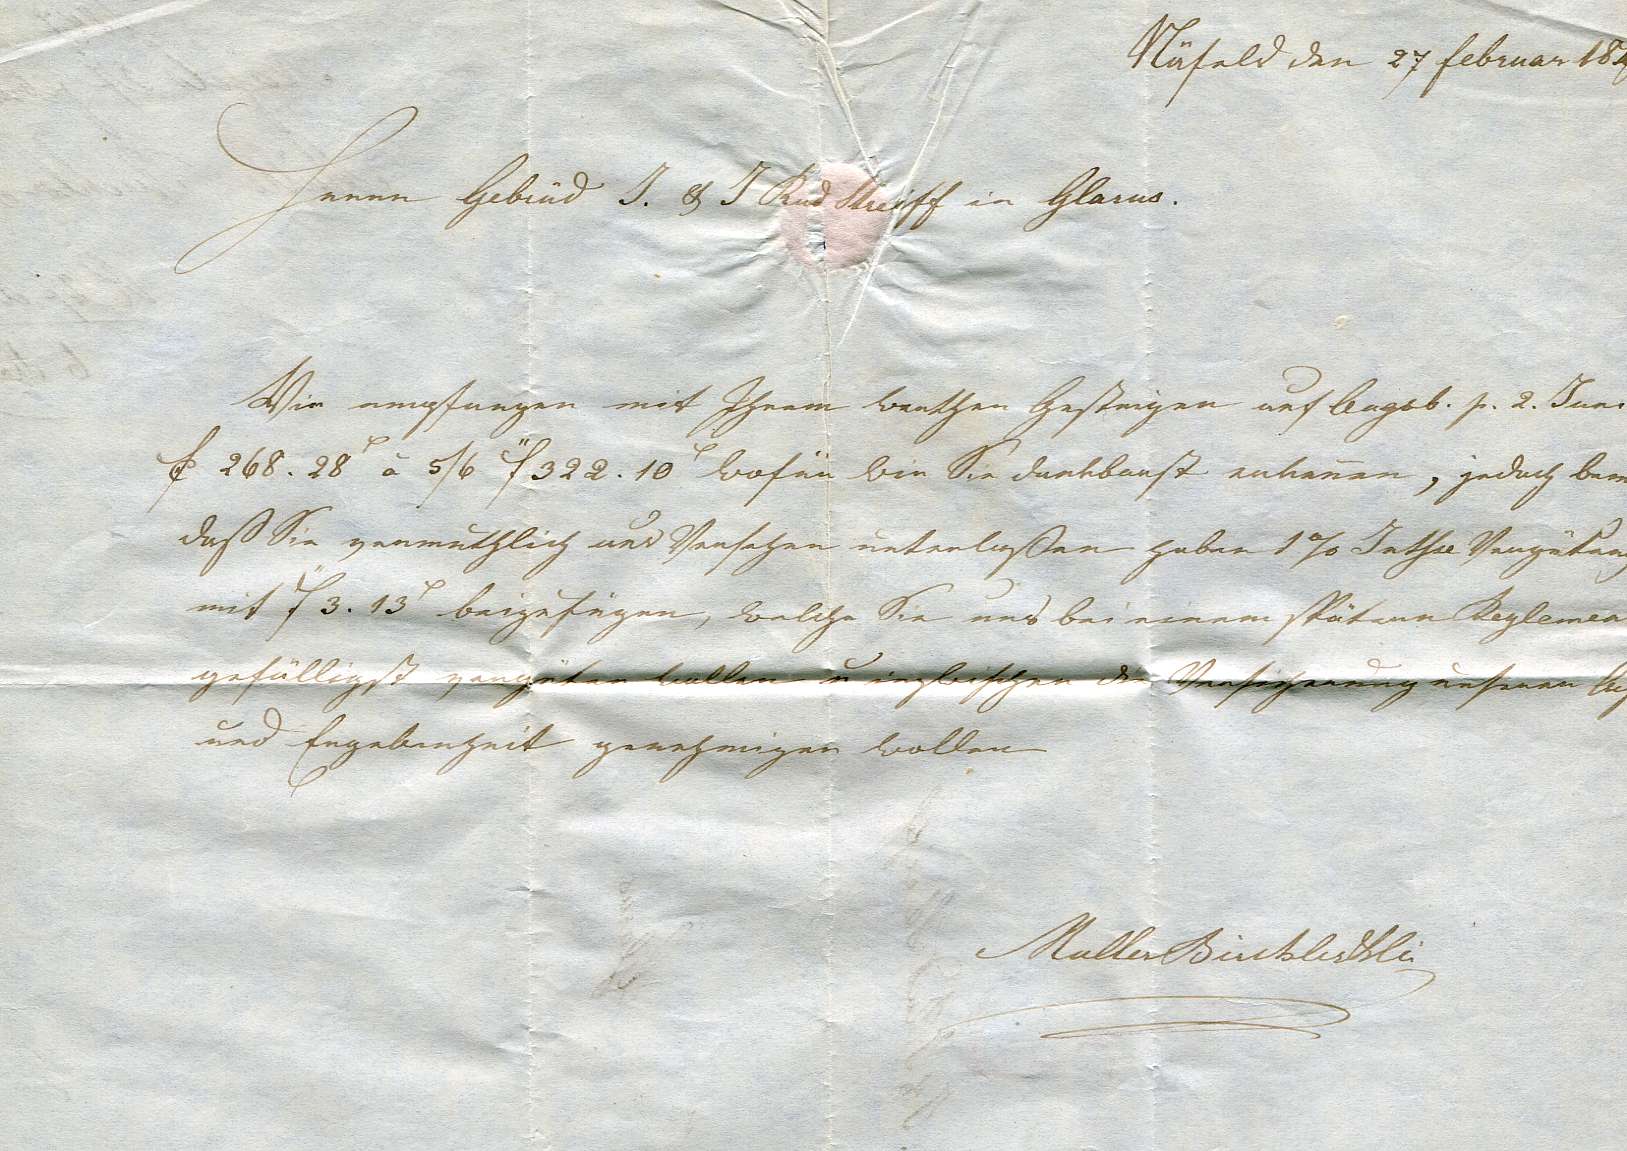 Näfels den 27 Februar 18
Herren Gebrüd J. & J Rud Streiff in Glarus.
Wir empfangen mit Ihrem werthen Gestrigen auf Augsb. p. 2. Juni
f 268. 28 à 5/6 f 322. 10 wofür wir Sie dankbarst erkennen, jedoch
daß Sie vermuthlich aus Versehen unterlaßen haben 1% Vergütung
mit f 3. 13 beizufügen, welche Sie uns bei einem spätern
gefälligst vergüten wollen u inzwischen die Versicherung unserer
und Ergebenheit genehmigen wollen
Müller